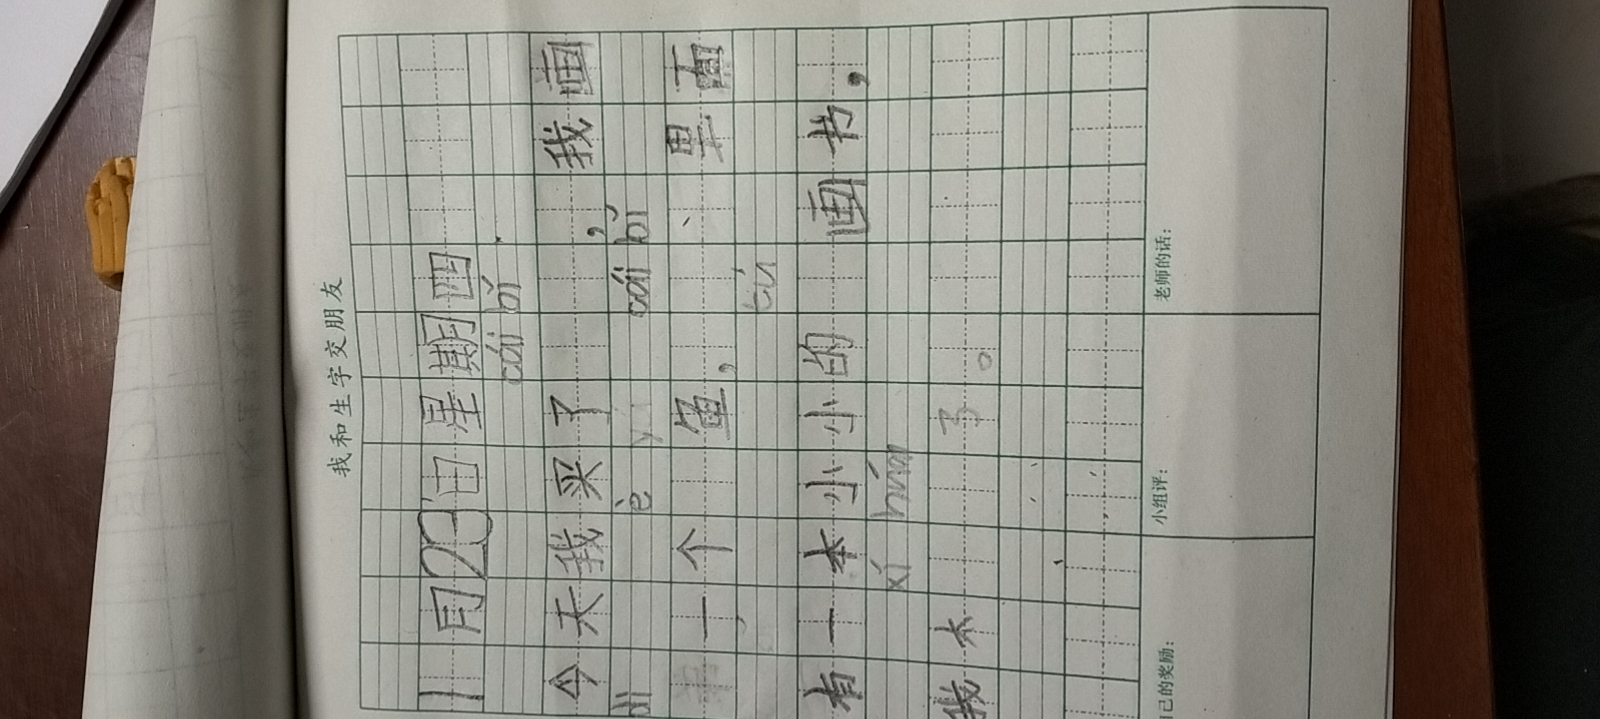 我和生字交朋友
1月20日星期四
cái bǐ
今天我买了 ，我画
dì è cái bǐ
一个 鱼， 里面
tú
有一本小小的 画书，
xǐ huan
我 。
己的奖励： 小组评： 老师的话：